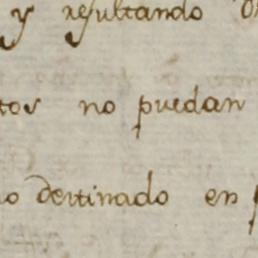 y resultando
tos no puedan
o destinado en